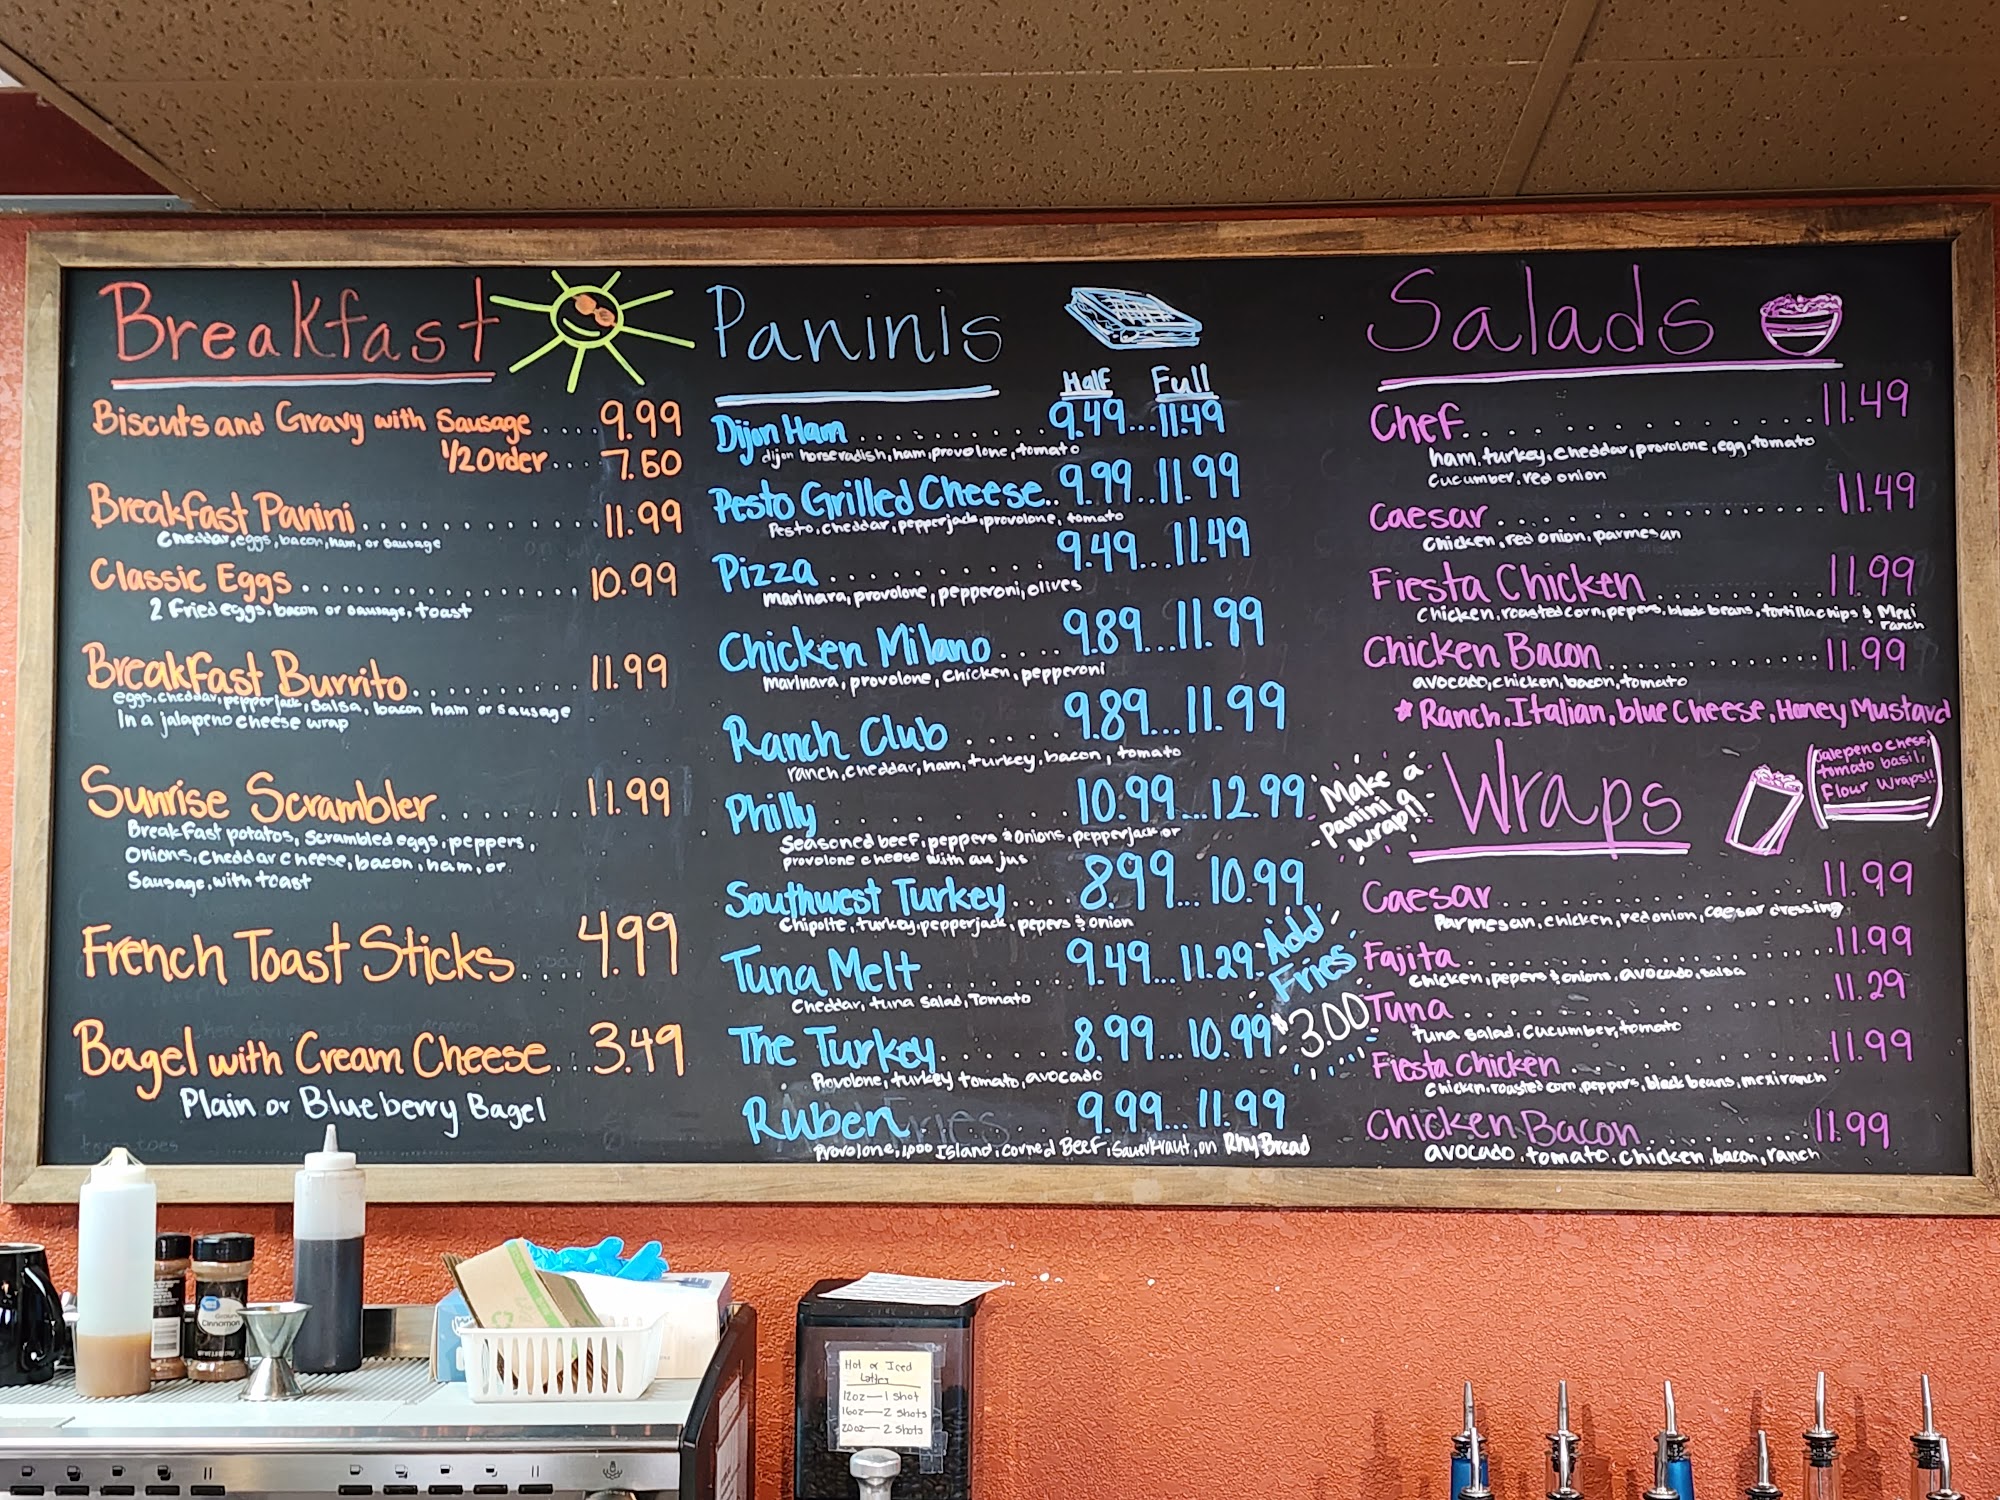 Breakfast
Biscuts and Gravy with Sausage .... 9.99
1/2 Order ... 7.50
Breakfast Panini ............ 11.99
Cheddar, eggs, bacon, ham, or sausage
Classic Eggs ................ 10.99
2 Fried eggs, bacon or sausage, toast
Breakfast Burrito .......... 11.99
eggs, cheddar, pepperjack, salsa, bacon ham or sausage
In a jalapeno cheese wrap
Sunrise Scrambler ......... 11.99
Breakfast potatos, scrambled eggs, peppers,
Onions, cheddar cheese, bacon, ham, or
Sausage, with toast
French Toast Sticks ..... 4.99
Bagel with Cream Cheese ... 3.49
Plain or Blueberry Bagel
Paninis
Half Full
Dijon Ham ............. 9.49...11.49
dijon horseradish, ham, provolone, tomato
Pesto Grilled Cheese.. 9.99...11.99
Pesto, cheddar, pepperjack, provolone, tomato
Pizza ........... 9.49...11.49
marinara, provolone, pepperoni, olives
Chicken Milano .... 9.89...11.99
marinara, provolone, chicken, pepperoni
Ranch Club ..... 9.89...11.99
ranch, cheddar, ham, turkey, bacon, tomato
Philly ........... 10.99...12.99
Seasoned beef, peppers & onions, pepperjack or
provolone cheese with au jus
Southwest Turkey .... 8.99...10.99
Chipolte, turkey, pepperjack, pepers & onion
Tuna Melt ........ 9.49...11.29
Cheddar, tuna salad, Tomato
The Turkey ....... 8.99...10.99
Provolone, turkey tomato, avocado
Ruben ......... 9.99...11.99
Provolone, 1,000 Island, corned Beef, Sauerkraut, on Rhy Bread
Make a
panini a
wrap!!
Add
Fries
$3.00
Salads
Chef ................ 11.49
ham, turkey, cheddar, provolone, egg, tomato
cucumber, red onion
Caesar ................. 11.49
Chicken, red onion, parmesan
Fiesta Chicken ......... 11.99
Chicken, roasted corn, pepers, black beans, tortilla chips & Mexi
ranch
Chicken Bacon ............ 11.99
avocado, chicken, bacon, tomato
* Ranch, Italian, blue Cheese, Honey Mustard
Wraps
Jalepeno chese,
tomato basil,
Flour Wraps!!
Caesar ................ 11.99
Parmesan, chicken, red onion, caesar dressing
Fajita ................. 11.99
Chicken, pepers & onions, avocado, salsa
Tuna .................. 11.29
tuna salad, cucumber, tomato
Fiesta Chicken ............ 11.99
Chicken, roasted corn, peppers, black beans, mexi ranch
Chicken Bacon .......... 11.99
avocado, tomato, chicken, bacon, ranch
Cinnamon
Hot or Iced
Lattes
12oz—1 shot
16oz—2 shots
20oz—2 shots